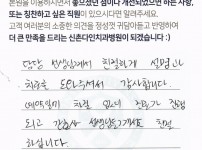 본원을 이용하시면서 좋으셨던 점이나 개선되었으면 하는 사항,
또는 칭찬하고 싶은 직원이 있으시다면 알려주세요.
고객 여러분의 소중한 의견을 정성껏 귀담아듣고 반영하여
더 큰 만족을 드리는 신촌다인치과병원이 되겠습니다 :)
담당 선생님께서 친절하게 설명과
치료를 해주셔서 감사합니다.
예약일이 차질 없이 진료가 진행
되고 간호사 선생님들께서도 친절
하십니다.